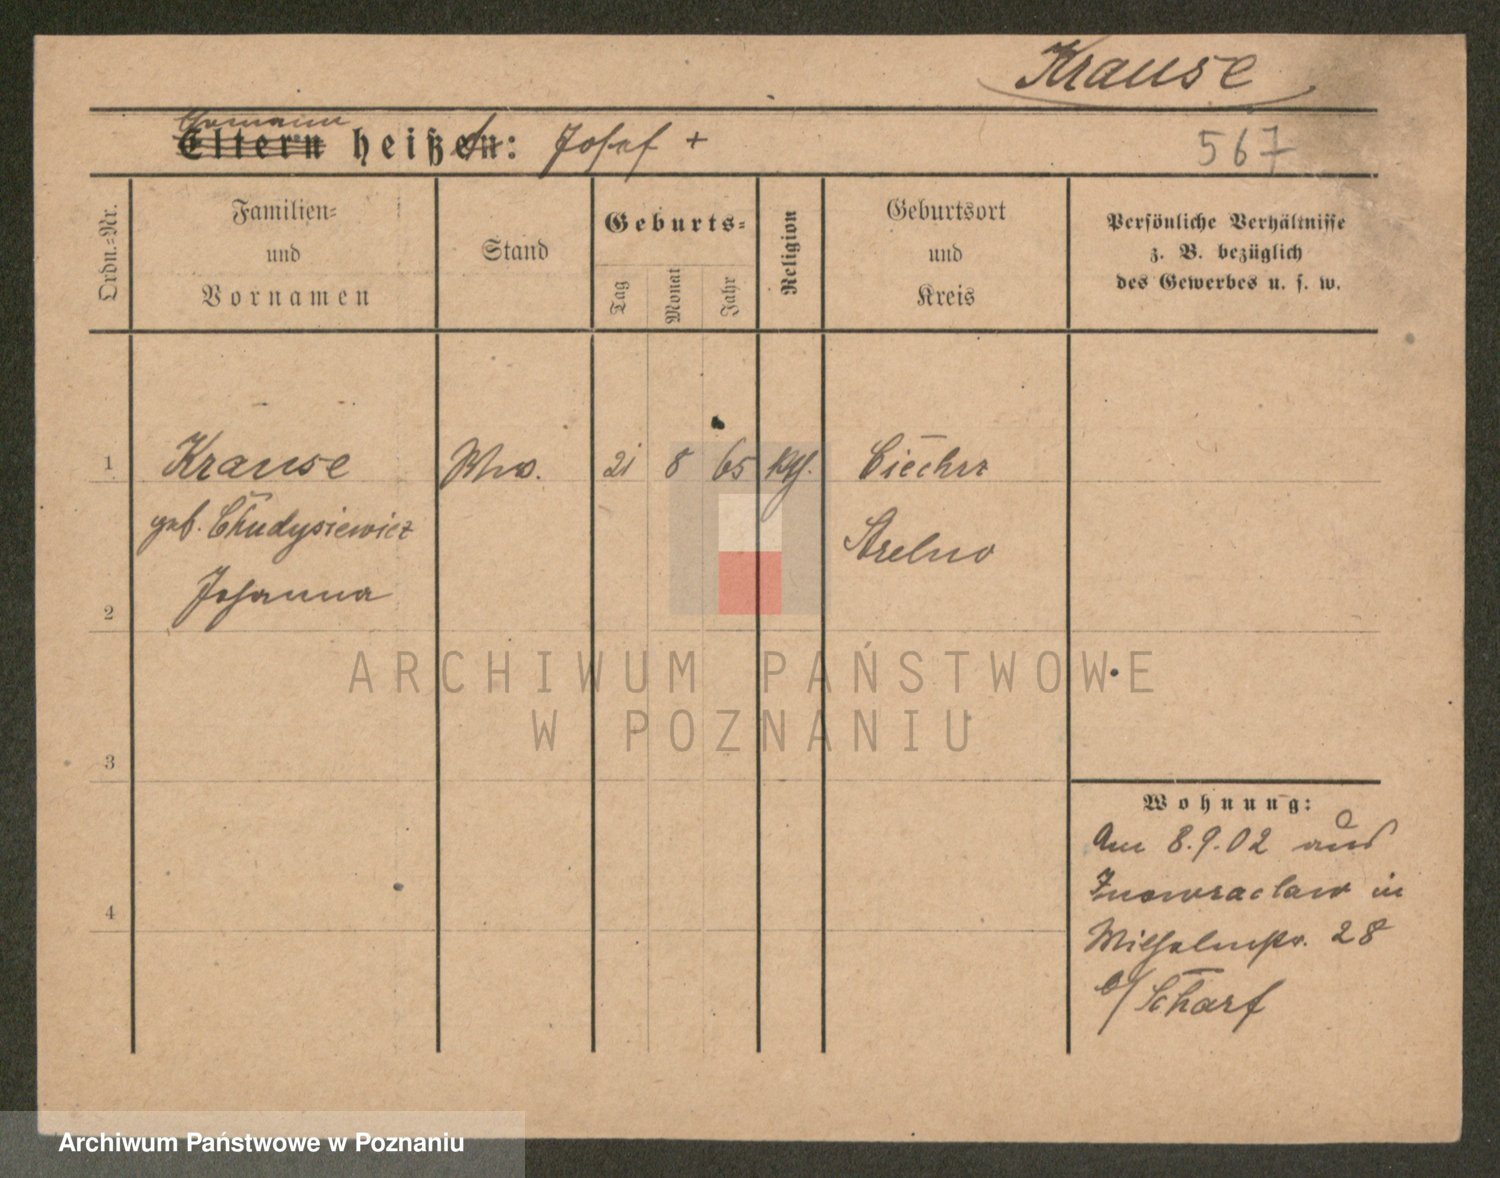 Krause
Ehemann
Eltern heißen: Josef +
567
Ordn.-Nr.
Familien-
und
Vornamen
Stand
Geburts-
Tag
Monat
Jahr
Religion
Geburtsort
und
Kreis
Persönliche Verhältnisse
z. B. bezüglich
des Gewerbes u. s. w.
1 Krause Wwe. 21 8 65 kth. Ciechrz
geb. Chudysiewicz Strelno
Johanna
2
3
4
Wohnung:
Am 8.9.02 aus
Inowraclaw in
Wilhelmstr. 28
b/ Scharf
ARCHIWUM PAŃSTWOWE
W POZNANIU
Archiwum Państwowe w Poznaniu